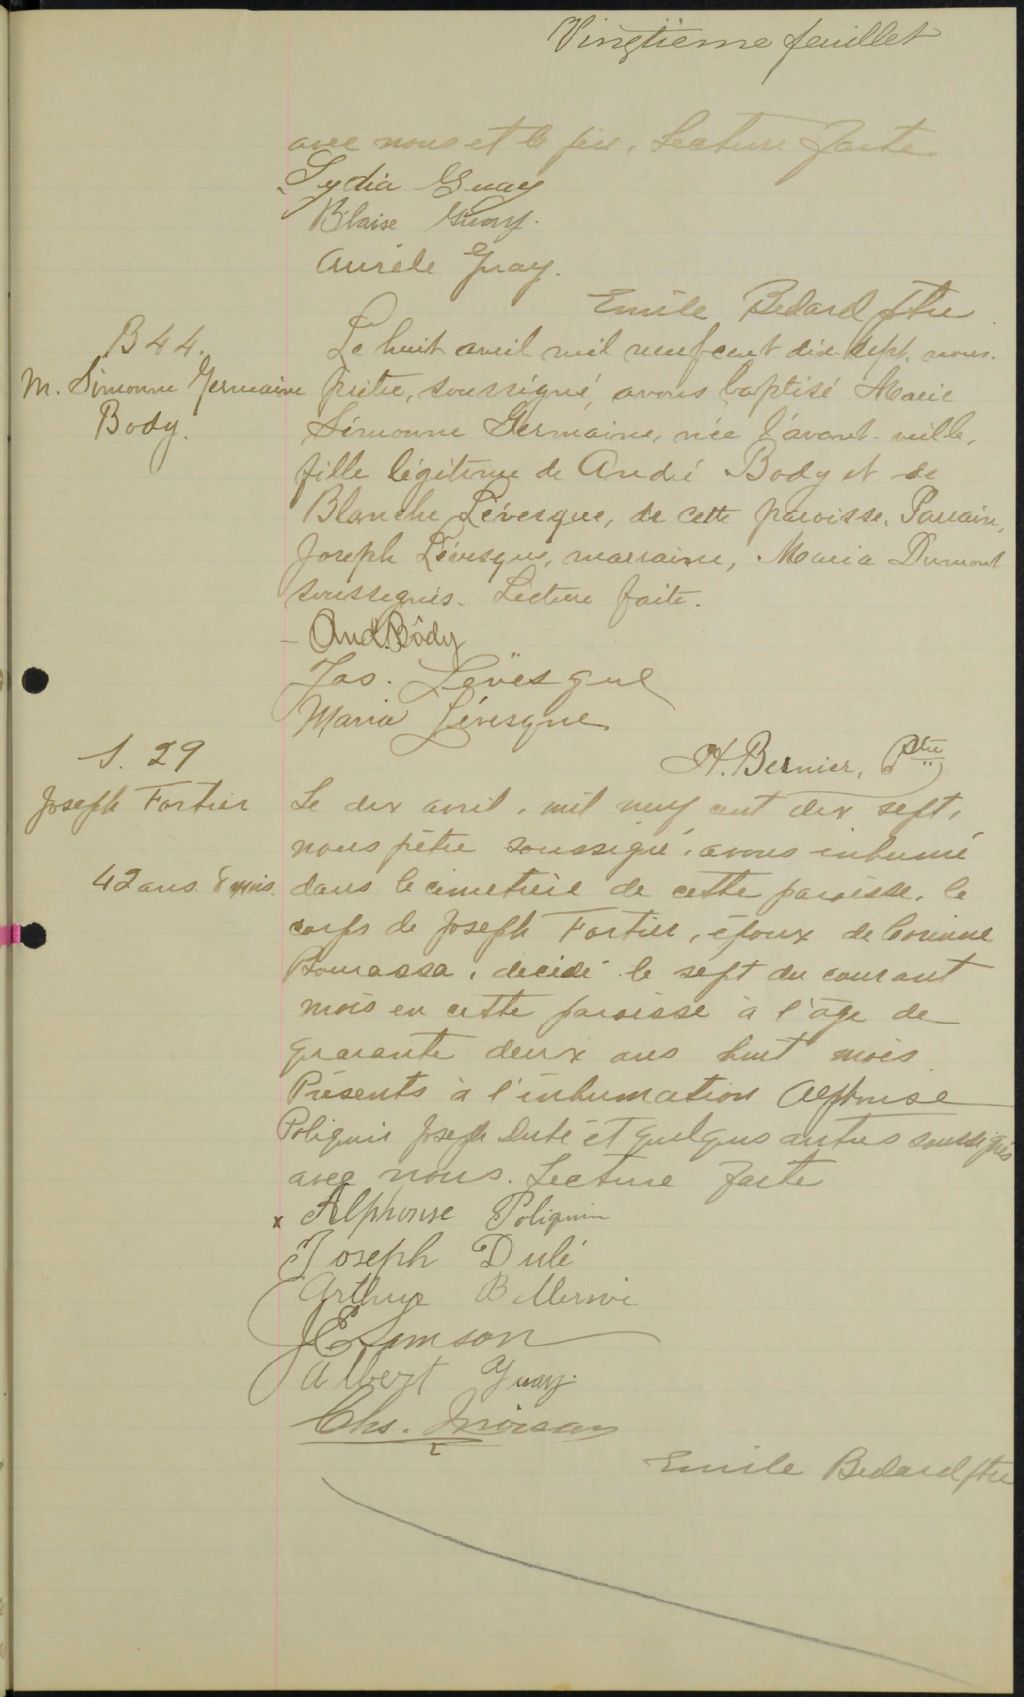 Vingtième feuillet
avec nous et le père. Lecture faite
Lydia Guay
Blaise Guay.
Aurèle Guay.
Emile Bedard ptre
B 44.
M. Simonne Germaine
Body.
Le huit avril mil neuf cent dix sept, nous
prêtre, soussigné, avons baptisé Marie
Simonne Germaine, née l'avant-veille,
fille légitime de André Body et de
Blanche Lévesque, de cette paroisse. Parrain,
Joseph Lévesque, marraine, Maria Dumont
soussignés. Lecture faite.
And. Bôdy
Jos. Levèsque
Maria Lévesque
H. Bernier, Ptre
S. 29
Joseph Fortier
42 ans 8 mois.
Le dix avril, mil neuf cent dix sept,
nous prêtre soussigné, avons inhumé
dans le cimetière de cette paroisse, le
corps de Joseph Fortier, époux de Corinne
Bourassa, décédé le sept du courant
mois en cette paroisse à l'âge de
quarante deux ans huit mois
Présents à l'inhumation Alphonse
Poliquin Joseph Dulé et quelques autres soussignés
avec nous. Lecture faite
x Alphonse Poliquin
Joseph Dulé
Arthur
J E Samson
Albert Guay.
Chs. Moisan
Emile Bedard ptre